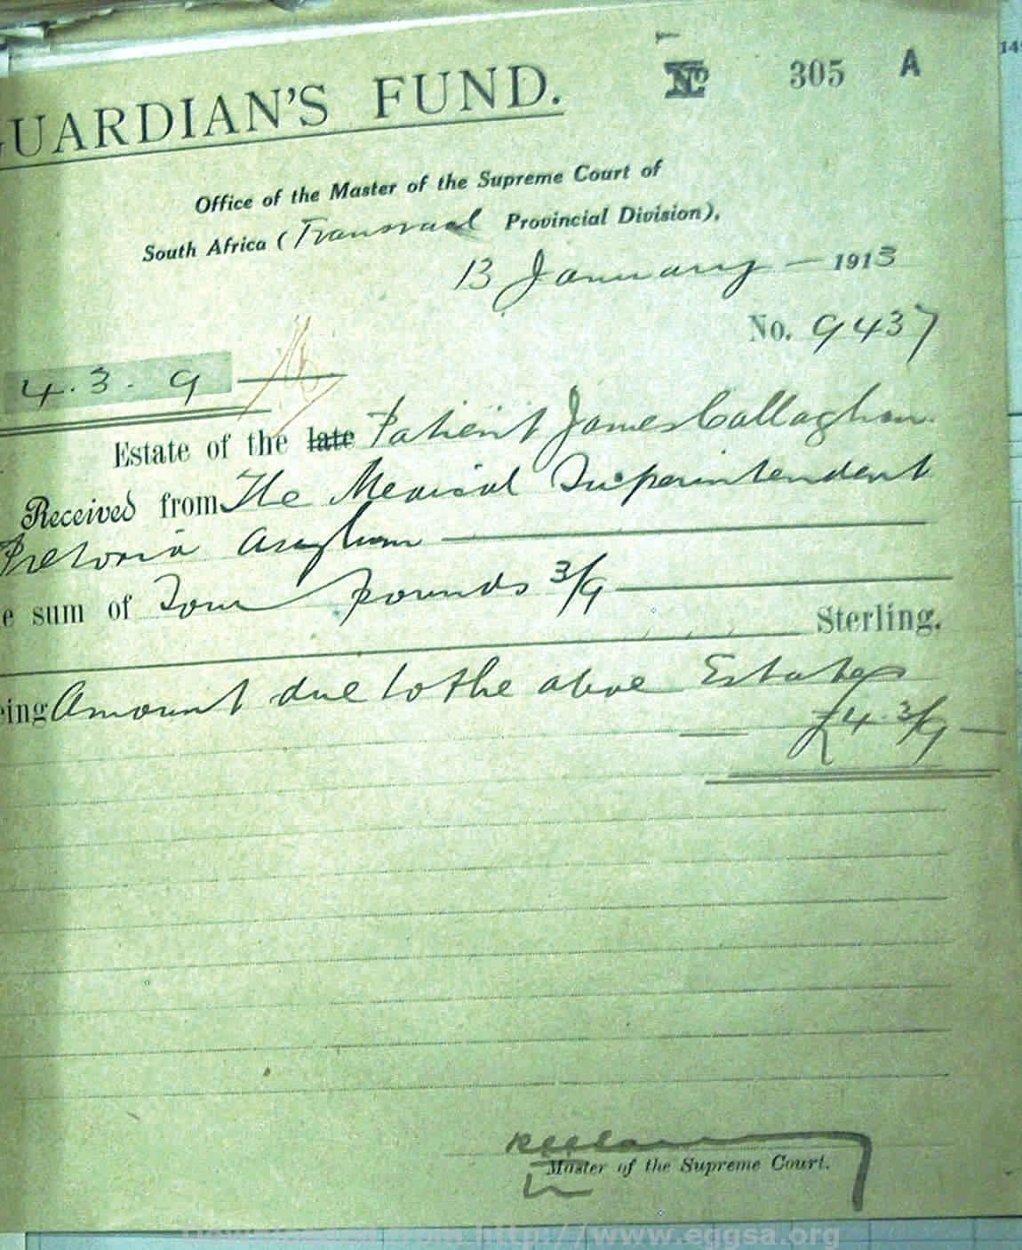 GUARDIAN'S FUND.
No 305 A
Office of the Master of the Supreme Court of
South Africa (Transvaal Provincial Division),
13 January 1913
No. 9437
4.3.9
Estate of the late Patient James Callaghan.
Received from The Medical Superintendent
Pretoria Asylum
e sum of Four pounds 3/9
Sterling.
eing Amount due to the above Estate
£4.3/9
Master of the Supreme Court.
http://www.eggsa.org